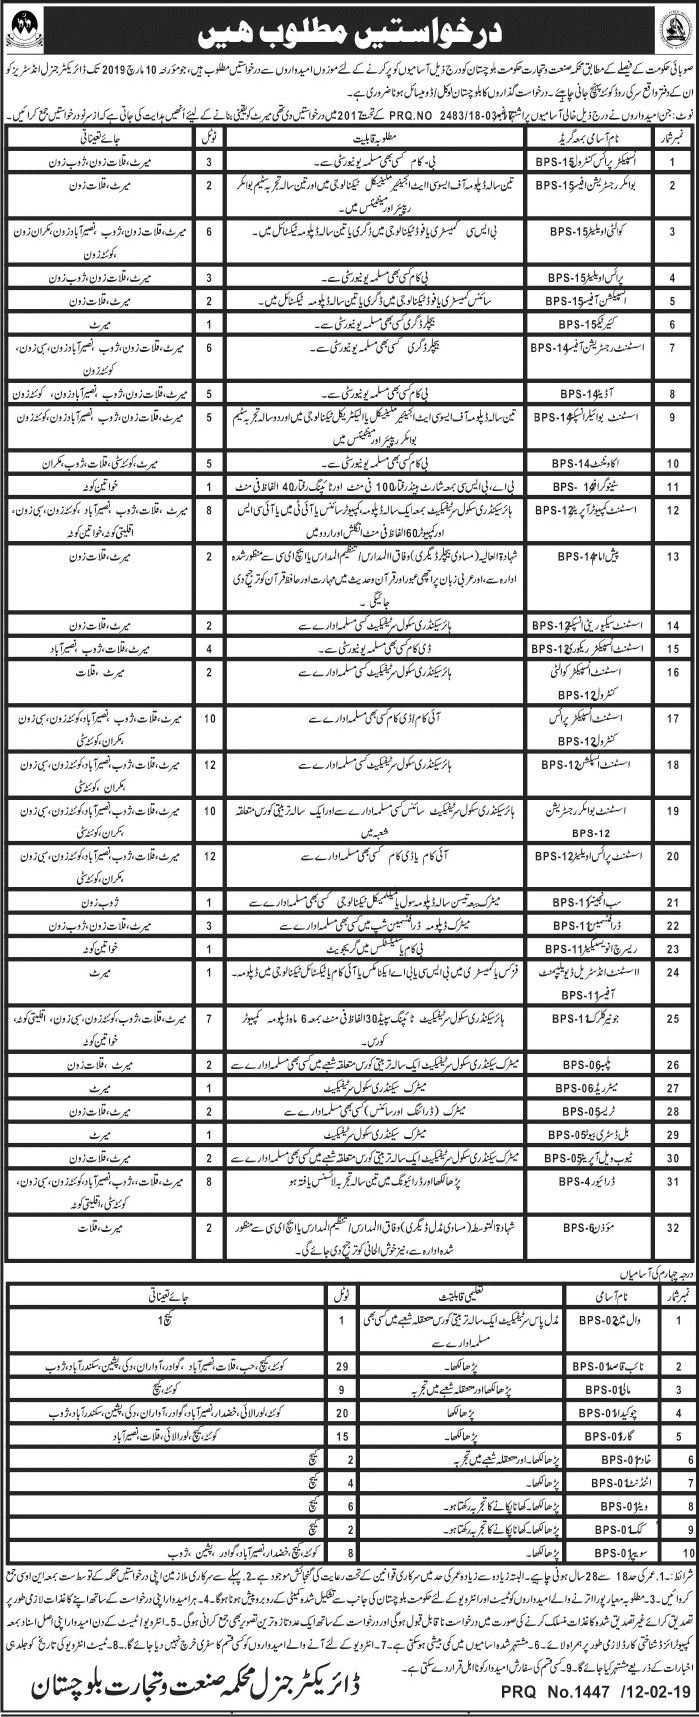 درخواستیں مطلوب ہیں
صوبائی حکومت کے فیصلے کے مطابق محکمہ صنعت و تجارت حکومت بلوچستان کو درج ذیل آسامیوں کو پُر کرنے کے لئے موزوں امیدواروں سے درخواستیں مطلوب ہیں، جو مؤرخہ 10 مارچ 2019 تک ڈائریکٹر جنرل انڈسٹریز کو
ان کے دفتر واقع سرکی روڈ کوئٹہ پہنچ جانی چاہئے۔ درخواست گذاروں کا بلوچستان لوکل / ڈومیسائل ہونا ضروری ہے۔
نوٹ: جن امیدواروں نے درج ذیل خالی آسامیوں پر اشتہار نمبر PRQ.NO 2483/18-03-17 کے تحت 2017 میں درخواستیں دی تھی میرٹ کو یقینی بنانے کے لئے انھیں ہدایت کی جاتی ہے کہ از سر نو درخواستیں جمع کرائیں۔
نمبر شمار نام آسامی بمعہ گریڈ مطلوبہ قابلیت ٹوٹل جائے تعیناتی
1 انسپکٹر پرائس کنٹرول BPS-15 بی۔ کام کسی بھی مسلمہ یونیورسٹی سے۔ 3 میرٹ، قلات زون، ژوب زون
2 بوائلر رجسٹریشن آفیسر BPS-15 تین سالہ ڈپلومہ آف ایسوسی ایٹ انجینیئر مکینیکل ٹیکنالوجی میں اور تین سالہ تجربہ سٹیم بوائلر 2 میرٹ، قلات زون
ریپیئر اور مینٹیننس میں۔
3 کوالٹی اویلیٹر BPS-15 بی ایس سی کیمسٹری یا فوڈ ٹیکنالوجی میں ڈگری یا تین سالہ ڈپلومہ ٹیکسٹائل میں۔ 6 میرٹ، قلات زون، ژوب نصیر آباد زون، مکران زون
، کوئٹہ زون
4 پرائس اویلیٹر BPS-15 بی کام کسی بھی مسلمہ یونیورسٹی سے۔ 3 میرٹ، قلات زون، ژوب زون
5 انسپکشن آفیسر BPS-15 سائنس کیمسٹری یا فوڈ ٹیکنالوجی میں ڈگری یا تین سالہ ڈپلومہ ٹیکسٹائل میں۔ 2 میرٹ، قلات زون
6 کیئر ٹیکر BPS-15 بیچلر ڈگری کسی بھی مسلمہ یونیورسٹی سے۔ 1 میرٹ
7 اسسٹنٹ رجسٹریشن آفیسر BPS-14 بیچلر ڈگری کسی بھی مسلمہ یونیورسٹی سے۔ 6 میرٹ، قلات زون، ژوب، نصیر آباد زون، سبی زون،
کوئٹہ زون
8 آڈیٹر BPS-14 بی کام کسی بھی مسلمہ یونیورسٹی سے۔ 5 میرٹ، قلات زون، ژوب نصیر آباد زون، کوئٹہ زون
9 اسسٹنٹ بوائلر انسپکٹر BPS-14 تین سالہ ڈپلومہ آف ایسوسی ایٹ انجینیئر مکینیکل یا الیکٹریکل ٹیکنالوجی میں اور دو سالہ تجربہ سٹیم 5 میرٹ، قلات زون، ژوب، نصیر آباد زون، کوئٹہ زون
بوائلر ریپیئر اور مینٹیننس میں
10 اکاؤنٹنٹ BPS-14 بی کام کسی بھی مسلمہ یونیورسٹی سے۔ 5 میرٹ، کوئٹہ سٹی، قلات، ژوب، مکران
11 سٹینوگرافر BPS-14 بی اے، بی ایس سی بمعہ شارٹ ہینڈ رفتار 100 فی منٹ اور ٹائپنگ رفتار 40 الفاظ فی منٹ 1 خواتین کوٹہ
12 اسسٹنٹ کمپیوٹر آپریٹر BPS-12 ہائر سیکنڈری سکول سرٹیفکیٹ بمعہ ایک سالہ ڈپلومہ، کمپیوٹر سائنس یا آئی ٹی میں یا آئی سی ایس 8 میرٹ، قلات، ژوب، نصیر آباد، کوئٹہ زون، سبی زون،
اور کمپیوٹر 60 الفاظ فی منٹ انگلش اور اردو میں اقلیتی کوٹہ، خواتین کوٹہ
13 پیش امام BPS-14 شہادۃ العالیہ (مساوی بیچلر ڈگری) وفاق المدارس / تنظیم المدارس یا ایچ ای سی سے منظور شدہ 2 میرٹ، قلات زون
ادارہ سے، اور عربی زبان پر اچھی عبور اور قرآن و حدیث میں مہارت اور حافظ قرآن کو ترجیح دی
جائیگی۔
14 اسسٹنٹ سیکیورٹی انسپکٹر BPS-12 ہائر سیکنڈری سکول سرٹیفکیٹ کسی مسلمہ ادارے سے 2 میرٹ، قلات زون
15 اسسٹنٹ انسپکٹر ریکوری BPS-12 ڈی کام کسی مسلمہ یونیورسٹی سے۔ 4 میرٹ، قلات، ژوب، نصیر آباد
16 اسسٹنٹ انسپکٹر کوالٹی ہائر سیکنڈری سکول سرٹیفکیٹ کسی مسلمہ ادارے سے 2 میرٹ، قلات
کنٹرول BPS-12
17 اسسٹنٹ انسپکٹر پرائس آئی کام / ڈی کام کسی بھی مسلمہ ادارے سے 10 میرٹ، قلات، ژوب، نصیر آباد، کوئٹہ زون، سبی زون
کنٹرول BPS-12 ،مکران، کوئٹہ سٹی
18 اسسٹنٹ انسپکشن BPS-12 ہائر سیکنڈری سکول سرٹیفکیٹ کسی مسلمہ ادارے سے 12 میرٹ، قلات، ژوب، نصیر آباد، کوئٹہ زون، سبی زون،
مکران، کوئٹہ سٹی
19 اسسٹنٹ بوائلر رجسٹریشن ہائر سیکنڈری سکول سرٹیفکیٹ سائنس کسی مسلمہ ادارے سے اور ایک سالہ تربیتی کورس متعلقہ 10 میرٹ، قلات، ژوب، نصیر آباد، کوئٹہ زون، سبی زون
BPS-12 شعبہ میں ،مکران، کوئٹہ سٹی
20 اسسٹنٹ پرائس اویلیٹر BPS-12 آئی کام یا ڈی کام کسی بھی مسلمہ ادارے سے 12 میرٹ، قلات، ژوب، نصیر آباد، کوئٹہ زون، سبی زون
،مکران، کوئٹہ سٹی
21 سب انجینئر BPS-11 میٹرک بمعہ تین سالہ ڈپلومہ سول یا مکینیکل ٹیکنالوجی کسی بھی مسلمہ ادارے سے 1 ژوب زون
22 ڈرافٹسمین BPS-11 میٹرک ڈپلومہ ڈرافٹسمین شپ میں کسی بھی مسلمہ ادارے سے 3 میرٹ، قلات زون، ژوب زون
23 ریسرچ انویسٹیگیٹر BPS-11 بی کام یا سٹیٹسٹکس میں گریجویٹ 1 خواتین کوٹہ
24 اسسٹنٹ انڈسٹریل ڈیویلپمنٹ فزکس یا کیمسٹری میں بی ایس سی یا بی اے اکنامکس یا آئی کام یا ٹیکسٹائل ٹیکنالوجی میں ڈپلومہ۔ 1 میرٹ
آفیسر BPS-11
25 جونیئر کلرک BPS-11 ہائر سیکنڈری سکول سرٹیفکیٹ ٹائپنگ سپیڈ 30 الفاظ فی منٹ بمعہ 6 ماہ ڈپلومہ کمپیوٹر 7 میرٹ، قلات، ژوب، کوئٹہ زون، سبی زون، اقلیتی کوٹہ،
کورس۔ خواتین کوٹہ
26 پلمبر BPS-06 میٹرک سکینڈری سکول سرٹیفکیٹ ایک سالہ تربیتی کورس متعلقہ شعبے میں کسی بھی مسلمہ ادارے سے 2 میرٹ، قلات زون
27 میٹر ریڈر BPS-06 میٹرک سکینڈری سکول سرٹیفکیٹ 1 میرٹ
28 ٹریسر BPS-05 میٹرک (ڈرائنگ اور سائنس) کسی بھی مسلمہ ادارے سے 2 میرٹ، قلات زون
29 بل ڈسٹری بیوٹر BPS-05 میٹرک سکینڈری سکول سرٹیفکیٹ 1 میرٹ
30 ٹیوب ویل آپریٹر BPS-05 میٹرک سکینڈری سکول سرٹیفکیٹ ایک سالہ تربیتی کورس متعلقہ شعبے میں کسی بھی مسلمہ ادارے سے 2 میرٹ، قلات زون
31 ڈرائیور BPS-4 پڑھا لکھا اور ڈرائیونگ میں تین سالہ تجربہ لائسنس یافتہ ہو 8 میرٹ، قلات، ژوب، نصیر آباد، کوئٹہ زون، سبی زون،
کوئٹہ سٹی، اقلیتی کوٹہ
32 مؤذن BPS-6 شہادۃ التوسطہ (مساوی مڈل ڈیگری) وفاق المدارس / تنظیم المدارس یا ایچ ای سی سے منظور 2 میرٹ، قلات
شدہ ادارہ سے، نیز خوش الحانی کو ترجیح دی جائے گی۔
درجہ چہارم کی آسامیاں
نمبر شمار نام آسامی تعلیمی قابلیت ٹوٹل جائے تعیناتی
1 وال مین BPS-02 مڈل پاس سرٹیفکیٹ ایک سالہ تربیتی کورس متعلقہ شعبے میں کسی بھی 1 کیچ 1
مسلمہ ادارے سے
2 نائب قاصد BPS-01 پڑھا لکھا۔ 29 کوئٹہ، کیچ، حب، قلات، نصیر آباد، گوادر، آواران، دکی، پشین، سکندر آباد، ژوب
3 مالی BPS-01 پڑھا لکھا اور متعلقہ شعبے میں تجربہ 9 کوئٹہ، کیچ
4 چوکیدار BPS-01 پڑھا لکھا 20 کوئٹہ، لورالائی، خضدار، نصیر آباد، گوادر، آواران، دکی، پشین، سکندر آباد، ژوب
5 گارڈ BPS-01 پڑھا لکھا۔ 15 کوئٹہ، کیچ، لورالائی، قلات، نصیر آباد
6 خادم BPS-01 پڑھا لکھا۔ اور متعلقہ شعبے میں تجربہ 2 کیچ
7 اٹنڈنٹ BPS-01 پڑھا لکھا۔ 4 کیچ
8 ویٹر BPS-01 پڑھا لکھا۔ کھانا پکانے کا تجربہ رکھتا ہو۔ 6 کیچ
9 کک BPS-01 پڑھا لکھا۔ کھانا پکانے کا تجربہ رکھتا ہو۔ 2 کیچ
10 سویپر BPS-01 پڑھا لکھا۔ 8 کوئٹہ، کیچ، خضدار، نصیر آباد، گوادر، پشین، ژوب
شرائط: 1۔ عمر کی حد 18 سے 28 سال ہونی چاہیے۔ البتہ زیادہ سے زیادہ عمر کی حد میں سرکاری قوانین کے تحت رعایت کی گنجائش موجود ہے۔ 2۔ پہلے سے سرکاری ملازمین اپنی درخواستیں محکمہ کے توسط سے بمعہ این او سی جمع
کروائیں۔ 3۔ مطلوبہ معیار پورا اترنے والے امیدواروں کو ٹیسٹ اور انٹرویو کے لئے حکومت بلوچستان کی جانب سے تشکیل شدہ کمیٹی کے روبرو پیش ہونا ہوگا۔ 4۔ ہر امیدوار اپنی درخواست کے ساتھ اپنے کاغذات لازمی طور پر
تصدیق کرائے غیر تصدیق شدہ کاغذات منسلک کرنے کی صورت میں درخواست ناقابل قبول ہوگی اور درخواست کے ساتھ ایک عدد تازہ ترین تصویر بھی جمع کرانی ہوگی۔ 5۔ انٹرویو / ٹیسٹ کے دن امیدوار اپنی اصل اسناد بمعہ
کمپیوٹرائزڈ شناختی کارڈ لازمی طور پر ہمراہ لائے۔ 6۔ مشتہر شدہ اسامیوں میں کمی بیشی ہو سکتی ہے۔ 7۔ انٹرویو کے لئے آنے والے امیدواروں کو کسی قسم کا سفری خرچ نہیں دیا جائے گا۔ 8۔ ٹیسٹ انٹرویو کی تاریخ کو جلد ہی
اخبارات کے ذریعے مشتہر کیا جائے گا۔ 9۔ کسی قسم کی سفارش امیدوار کو نااہل قرار دے سکتی ہے۔
ڈائریکٹر جنرل محکمہ صنعت و تجارت بلوچستان
PRQ No.1447 /12-02-19